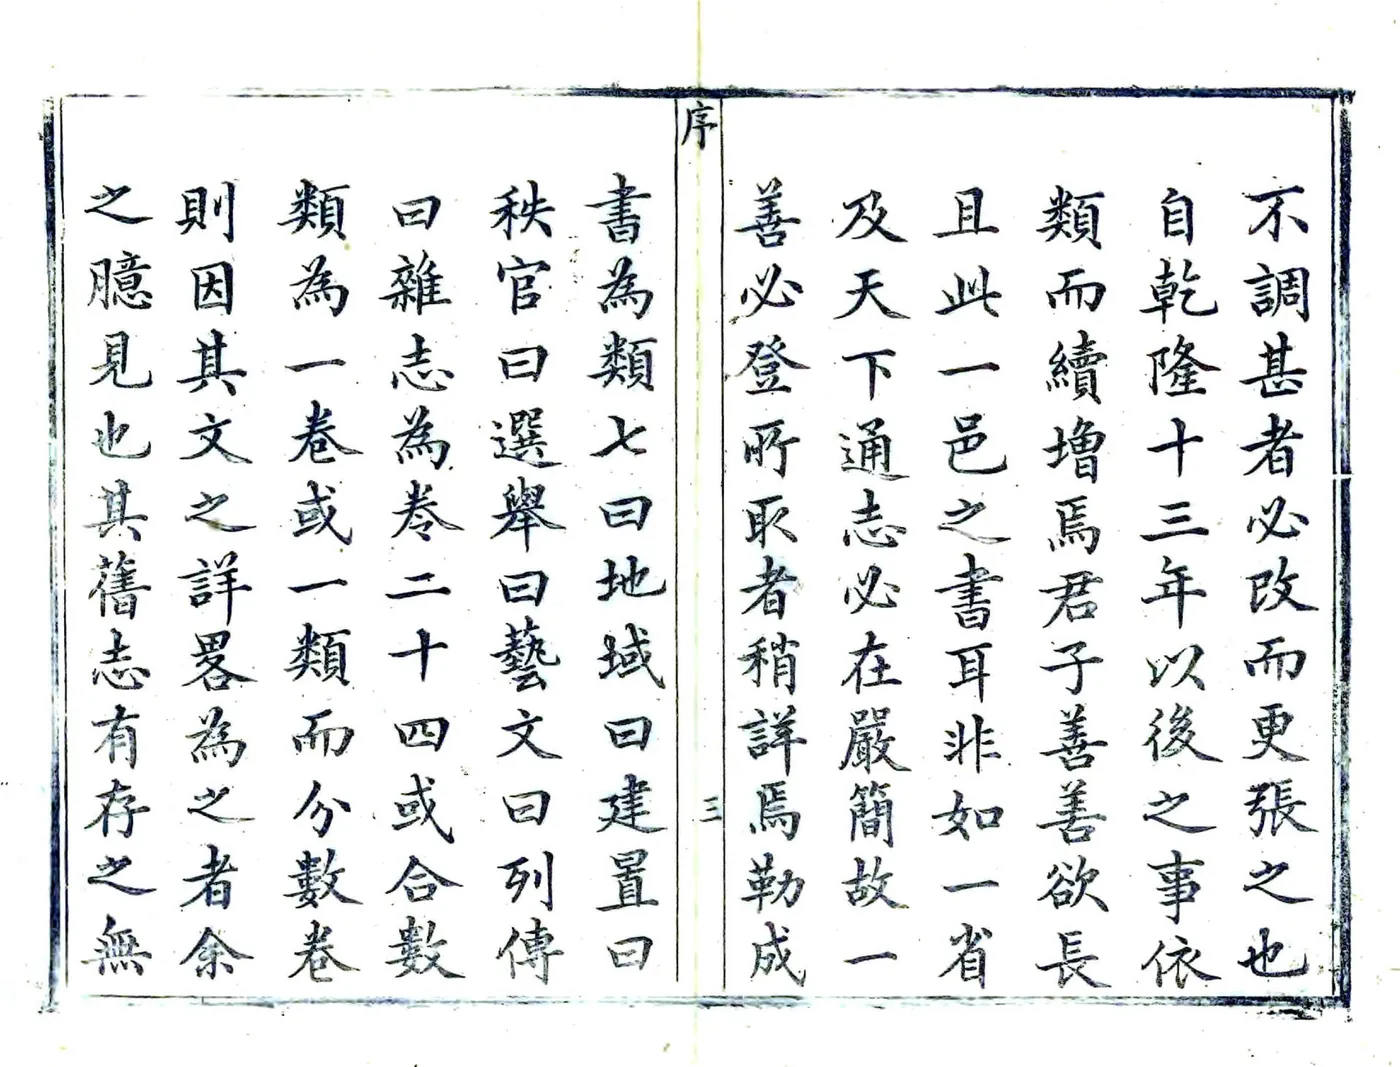 不調甚者必改而更張之也
自乾隆十三年以後之事依
類而續增焉君子善善欲長
且此一邑之書耳非如一省
及天下通志必在嚴簡故一
善必登所取者稍詳焉勒成
序
三
書為類七曰地域曰建置曰
秩官曰選舉曰藝文曰列傳
曰雜志為卷二十四或合數
類為一卷或一類而分數卷
則因其文之詳畧為之者余
之臆見也其舊志有存之無